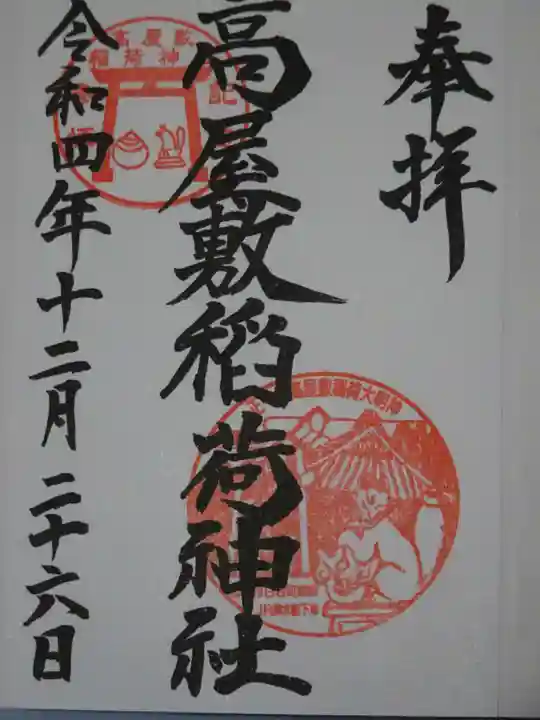 奉拝
高屋敷稲荷神社
令和四年十二月二十六日
高屋敷
稲荷神
高屋敷稲荷大明神